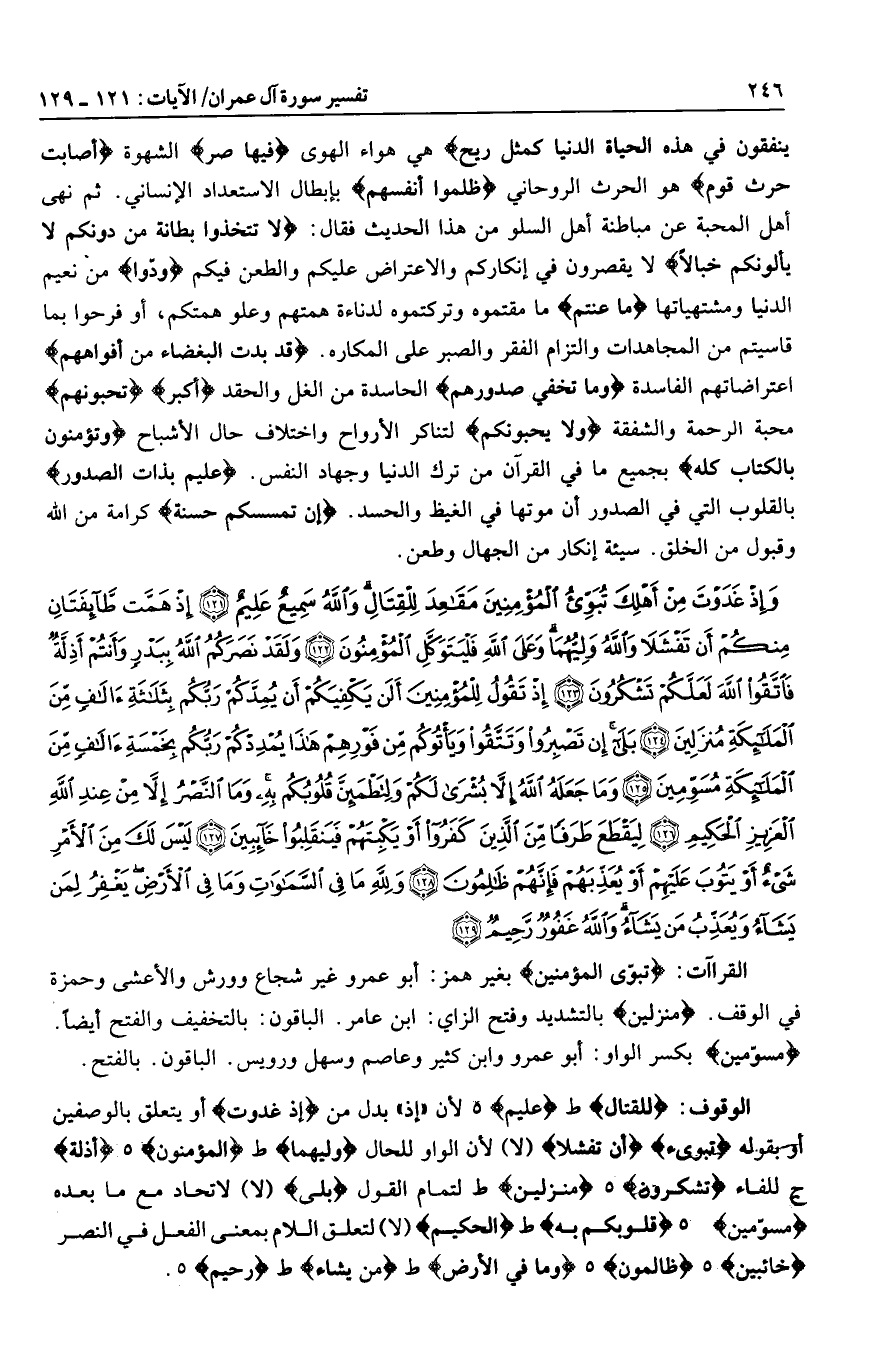 ٢٤٦ تفسير سورة آل عمران/ الآيات: ١٢١ ـ ١٢٩
ينفقون في هذه الحياة الدنيا كمثل ريح﴾ هي هواء الهوى ﴿فيها صر﴾ الشهوة ﴿أصابت
حرث قوم﴾ هو الحرث الروحاني ﴿ظلموا أنفسهم﴾ بإبطال الاستعداد الإنساني. ثم نهى
أهل المحبة عن مباطنة أهل السلو من هذا الحديث فقال: ﴿لا تتخذوا بطانة من دونكم لا
يألونكم خبالاً﴾ لا يقصرون في إنكاركم والاعتراض عليكم والطعن فيكم ﴿ودّوا﴾ من نعيم
الدنيا ومشتهياتها ﴿ما عنتم﴾ ما مقتموه وتركتموه لدناءة همتهم وعلو همتكم، أو فرحوا بما
قاسيتم من المجاهدات والتزام الفقر والصبر على المكاره. ﴿قد بدت البغضاء من أفواههم﴾
اعتراضاتهم الفاسدة ﴿وما تخفي صدورهم﴾ الحاسدة من الغل والحقد ﴿أكبر﴾ ﴿تحبونهم﴾
محبة الرحمة والشفقة ﴿ولا يحبونكم﴾ لتناكر الأرواح واختلاف حال الأشباح ﴿وتؤمنون
بالكتاب كله﴾ بجميع ما في القرآن من ترك الدنيا وجهاد النفس. ﴿عليم بذات الصدور﴾
بالقلوب التي في الصدور أن موتها في الغيظ والحسد. ﴿إن تمسسكم حسنة﴾ كرامة من الله
وقبول من الخلق. سيئة إنكار من الجهال وطعن.
وَإِذْ غَدَوْتَ مِنْ أَهْلِكَ تُبَوِّئُ ٱلْمُؤْمِنِينَ مَقَٰعِدَ لِلْقِتَالِۗ وَٱللَّهُ سَمِيعٌ عَلِيمٌ ﴿١٢١﴾ إِذْ هَمَّت طَّآئِفَتَانِ
مِنكُمْ أَن تَفْشَلَا وَٱللَّهُ وَلِيُّهُمَاۗ وَعَلَى ٱللَّهِ فَلْيَتَوَكَّلِ ٱلْمُؤْمِنُونَ ﴿١٢٢﴾ وَلَقَدْ نَصَرَكُمُ ٱللَّهُ بِبَدْرٍ وَأَنتُمْ أَذِلَّةٌۖ
فَٱتَّقُوا۟ ٱللَّهَ لَعَلَّكُمْ تَشْكُرُونَ ﴿١٢٣﴾ إِذْ تَقُولُ لِلْمُؤْمِنِينَ أَلَن يَكْفِيَكُمْ أَن يُمِدَّكُمْ رَبُّكُم بِثَلَٰثَةِ ءَالَٰفٍ مِّنَ
ٱلْمَلَٰٓئِكَةِ مُنزَلِينَ ﴿١٢٤﴾ بَلَىٰٓۚ إِن تَصْبِرُوا۟ وَتَتَّقُوا۟ وَيَأْتُوكُم مِّن فَوْرِهِمْ هَٰذَا يُمْدِدْكُمْ رَبُّكُم بِخَمْسَةِ ءَالَٰفٍ مِّنَ
ٱلْمَلَٰٓئِكَةِ مُسَوِّمِينَ ﴿١٢٥﴾ وَمَا جَعَلَهُ ٱللَّهُ إِلَّا بُشْرَىٰ لَكُمْ وَلِتَطْمَئِنَّ قُلُوبُكُم بِهِۦۗ وَمَا ٱلنَّصْرُ إِلَّا مِنْ عِندِ ٱللَّهِ
ٱلْعَزِيزِ ٱلْحَكِيمِ ﴿١٢٦﴾ لِيَقْطَعَ طَرَفًا مِّنَ ٱلَّذِينَ كَفَرُوٓا۟ أَوْ يَكْبِتَهُمْ فَيَنقَلِبُوا۟ خَآئِبِينَ ﴿١٢٧﴾ لَيْسَ لَكَ مِنَ ٱلْأَمْرِ
شَىْءٌ أَوْ يَتُوبَ عَلَيْهِمْ أَوْ يُعَذِّبَهُمْ فَإِنَّهُمْ ظَٰلِمُونَ ﴿١٢٨﴾ وَلِلَّهِ مَا فِى ٱلسَّمَٰوَٰتِ وَمَا فِى ٱلْأَرْضِۚ يَغْفِرُ لِمَن
يَشَآءُ وَيُعَذِّبُ مَن يَشَآءُۗ وَٱللَّهُ غَفُورٌ رَّحِيمٌ ﴿١٢٩﴾
القراآت: ﴿تبوّى المؤمنين﴾ بغير همز: أبو عمرو غير شجاع وورش والأعشى وحمزة
في الوقف. ﴿منزلين﴾ بالتشديد وفتح الزاي: ابن عامر. الباقون: بالتخفيف والفتح أيضاً.
﴿مسوّمين﴾ بكسر الواو: أبو عمرو وابن كثير وعاصم وسهل ورويس. الباقون. بالفتح.
الوقوف: ﴿للقتال﴾ ط ﴿عليم﴾ ٥ لأن «إذ» بدل من ﴿إذ غدوت﴾ أو يتعلق بالوصفين
أو بقوله ﴿تبوىء﴾ ﴿أن تفشلا﴾ (لا) لأن الواو للحال ﴿وليهما﴾ ط ﴿المؤمنون﴾ ٥ ﴿أذلة﴾
ج للفاء ﴿تشكرون﴾ ٥ ﴿منزلين﴾ ط لتمام القول ﴿بلى﴾ (لا) لاتحاد مع ما بعده
﴿مسوّمين﴾ ٥ ﴿قلوبكم به﴾ ط ﴿الحكيم﴾ (لا) لتعلق اللام بمعنى الفعل في النصر
﴿خائبين﴾ ٥ ﴿ظالمون﴾ ٥ ﴿وما في الأرض﴾ ط ﴿من يشاء﴾ ط ﴿رحيم﴾ ٥ .